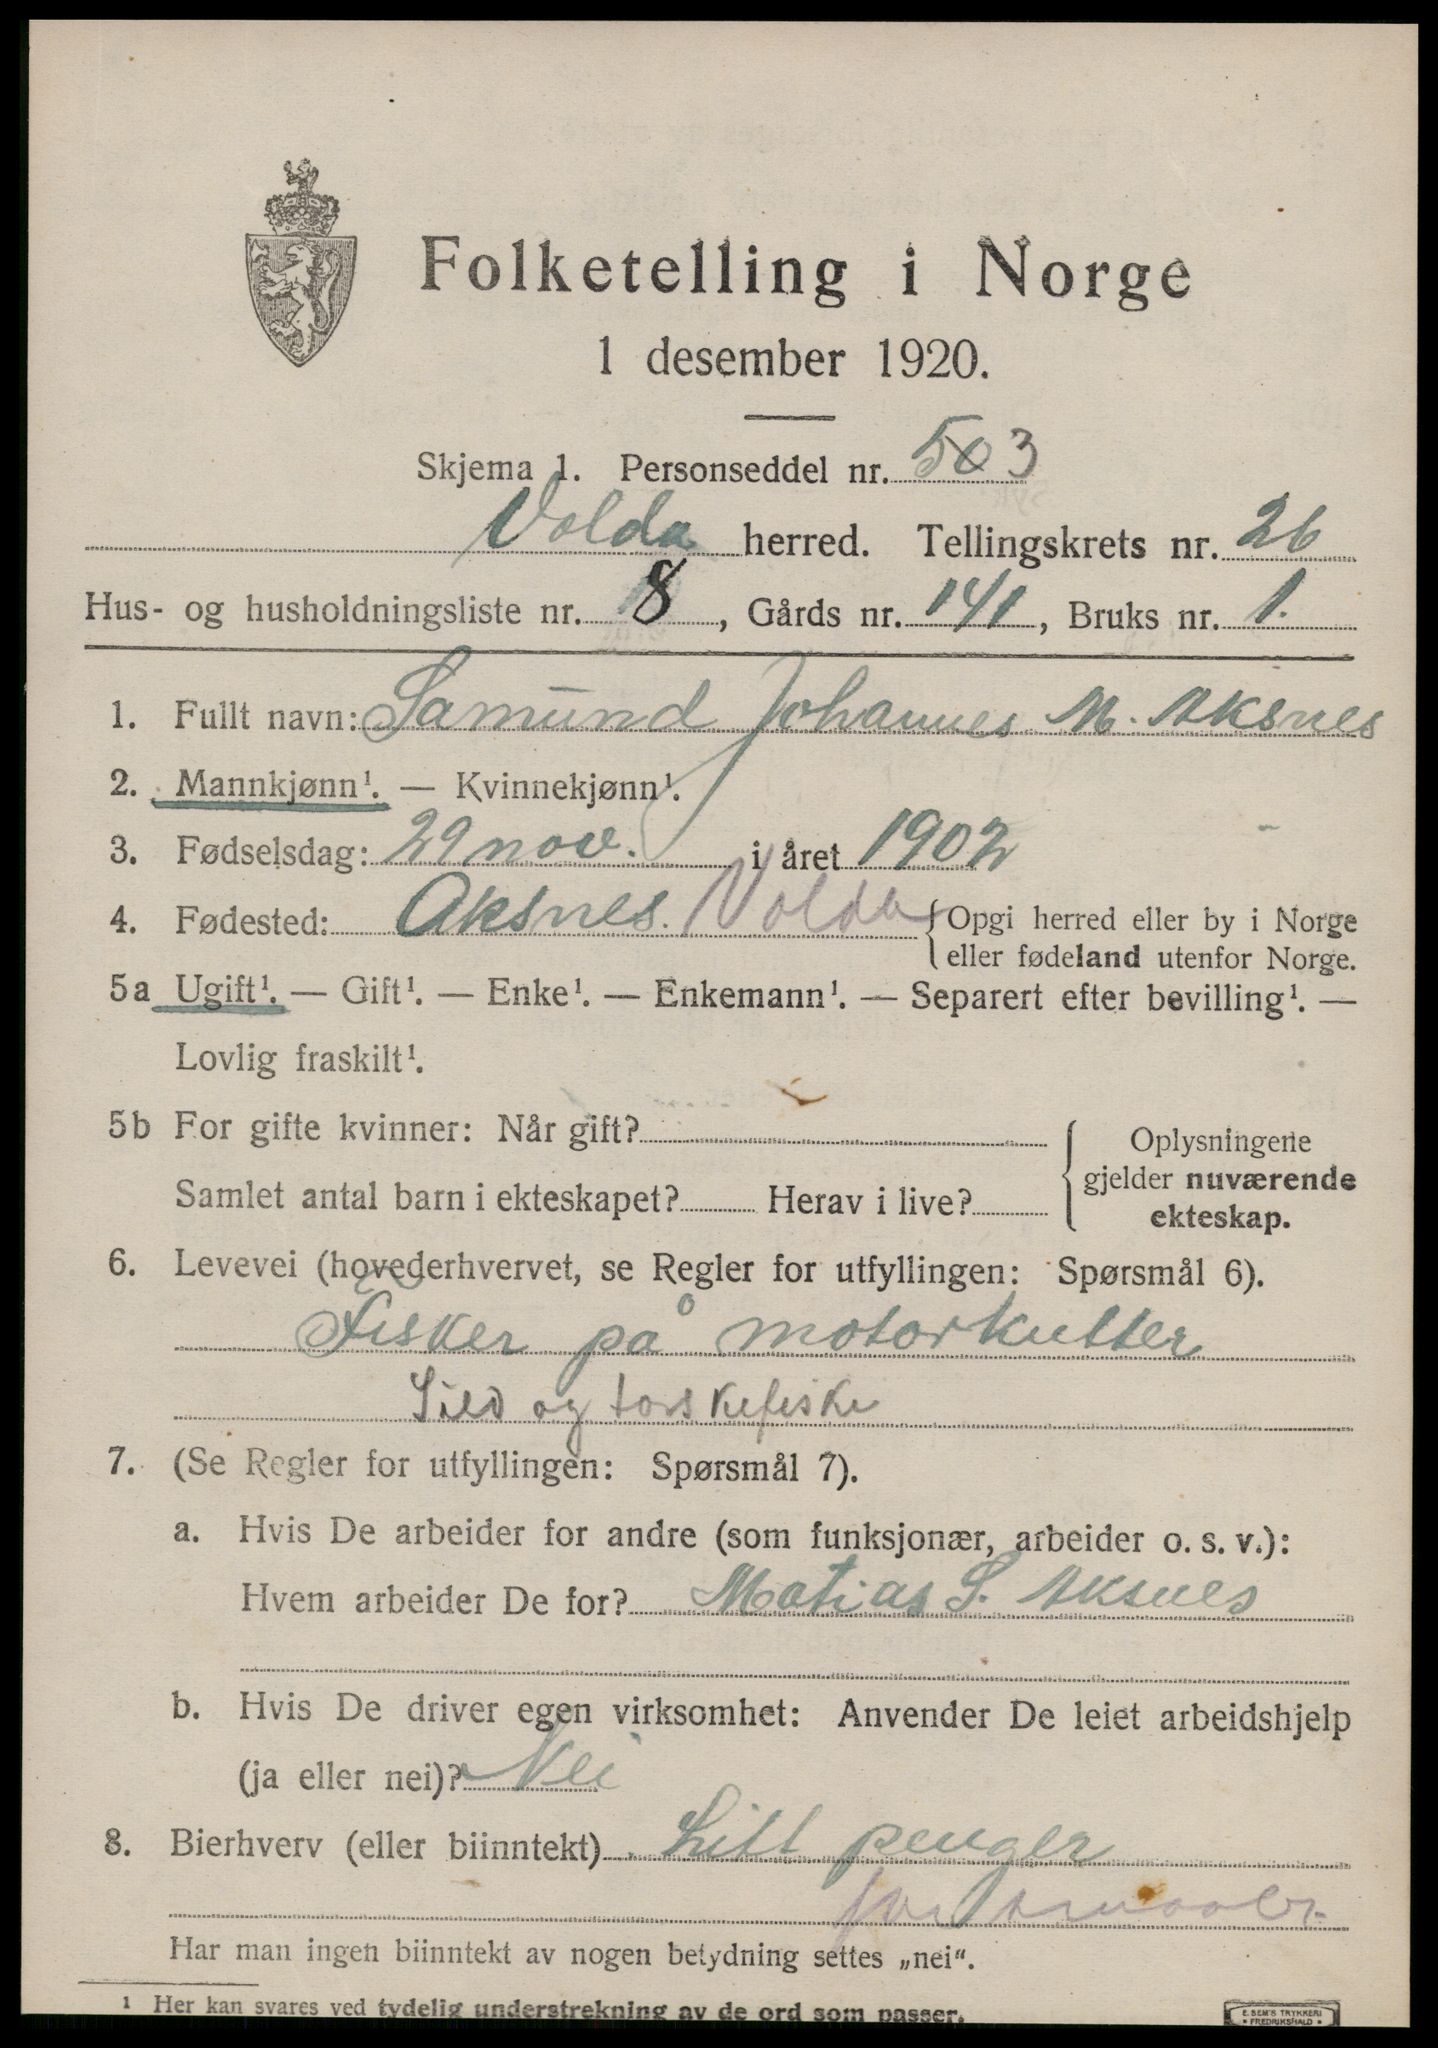 Folketelling i Norge
1 desember 1920.
Skjema 1. Personseddel nr. 503
Volda herred. Tellingskrets nr. 26
Hus- og husholdningsliste nr. 8, Gårds nr. 141, Bruks nr. 1.
1. Fullt navn: Samund Johannes M. Aksnes
2. Mannkjønn¹. — Kvinnekjønn¹.
3. Fødselsdag: 29 nov. i året 1902
4. Fødested: Aksnes. Volda {Opgi herred eller by i Norge
eller fødeland utenfor Norge.
5a Ugift¹. — Gift¹. — Enke¹. — Enkemann¹. — Separert efter bevilling¹. —
Lovlig fraskilt¹.
5b For gifte kvinner: Når gift? Oplysningene
Samlet antal barn i ekteskapet? Herav i live? gjelder nuværende
ekteskap.
6. Levevei (hovederhvervet, se Regler for utfyllingen: Spørsmål 6).
Fisker på motorkutter
Sild og torskefiske
7. (Se Regler for utfyllingen: Spørsmål 7).
a. Hvis De arbeider for andre (som funksjonær, arbeider o. s. v.):
Hvem arbeider De for? Matias S. Aksnes
b. Hvis De driver egen virksomhet: Anvender De leiet arbeidshjelp
(ja eller nei)? Nei
8. Bierhverv (eller biinntekt) Litt penger
Har man ingen biinntekt av nogen betydning settes „nei“.
¹ Her kan svares ved tydelig understrekning av de ord som passer.
E. SEM'S TRYKKERI
• FREDRIKSHALD •